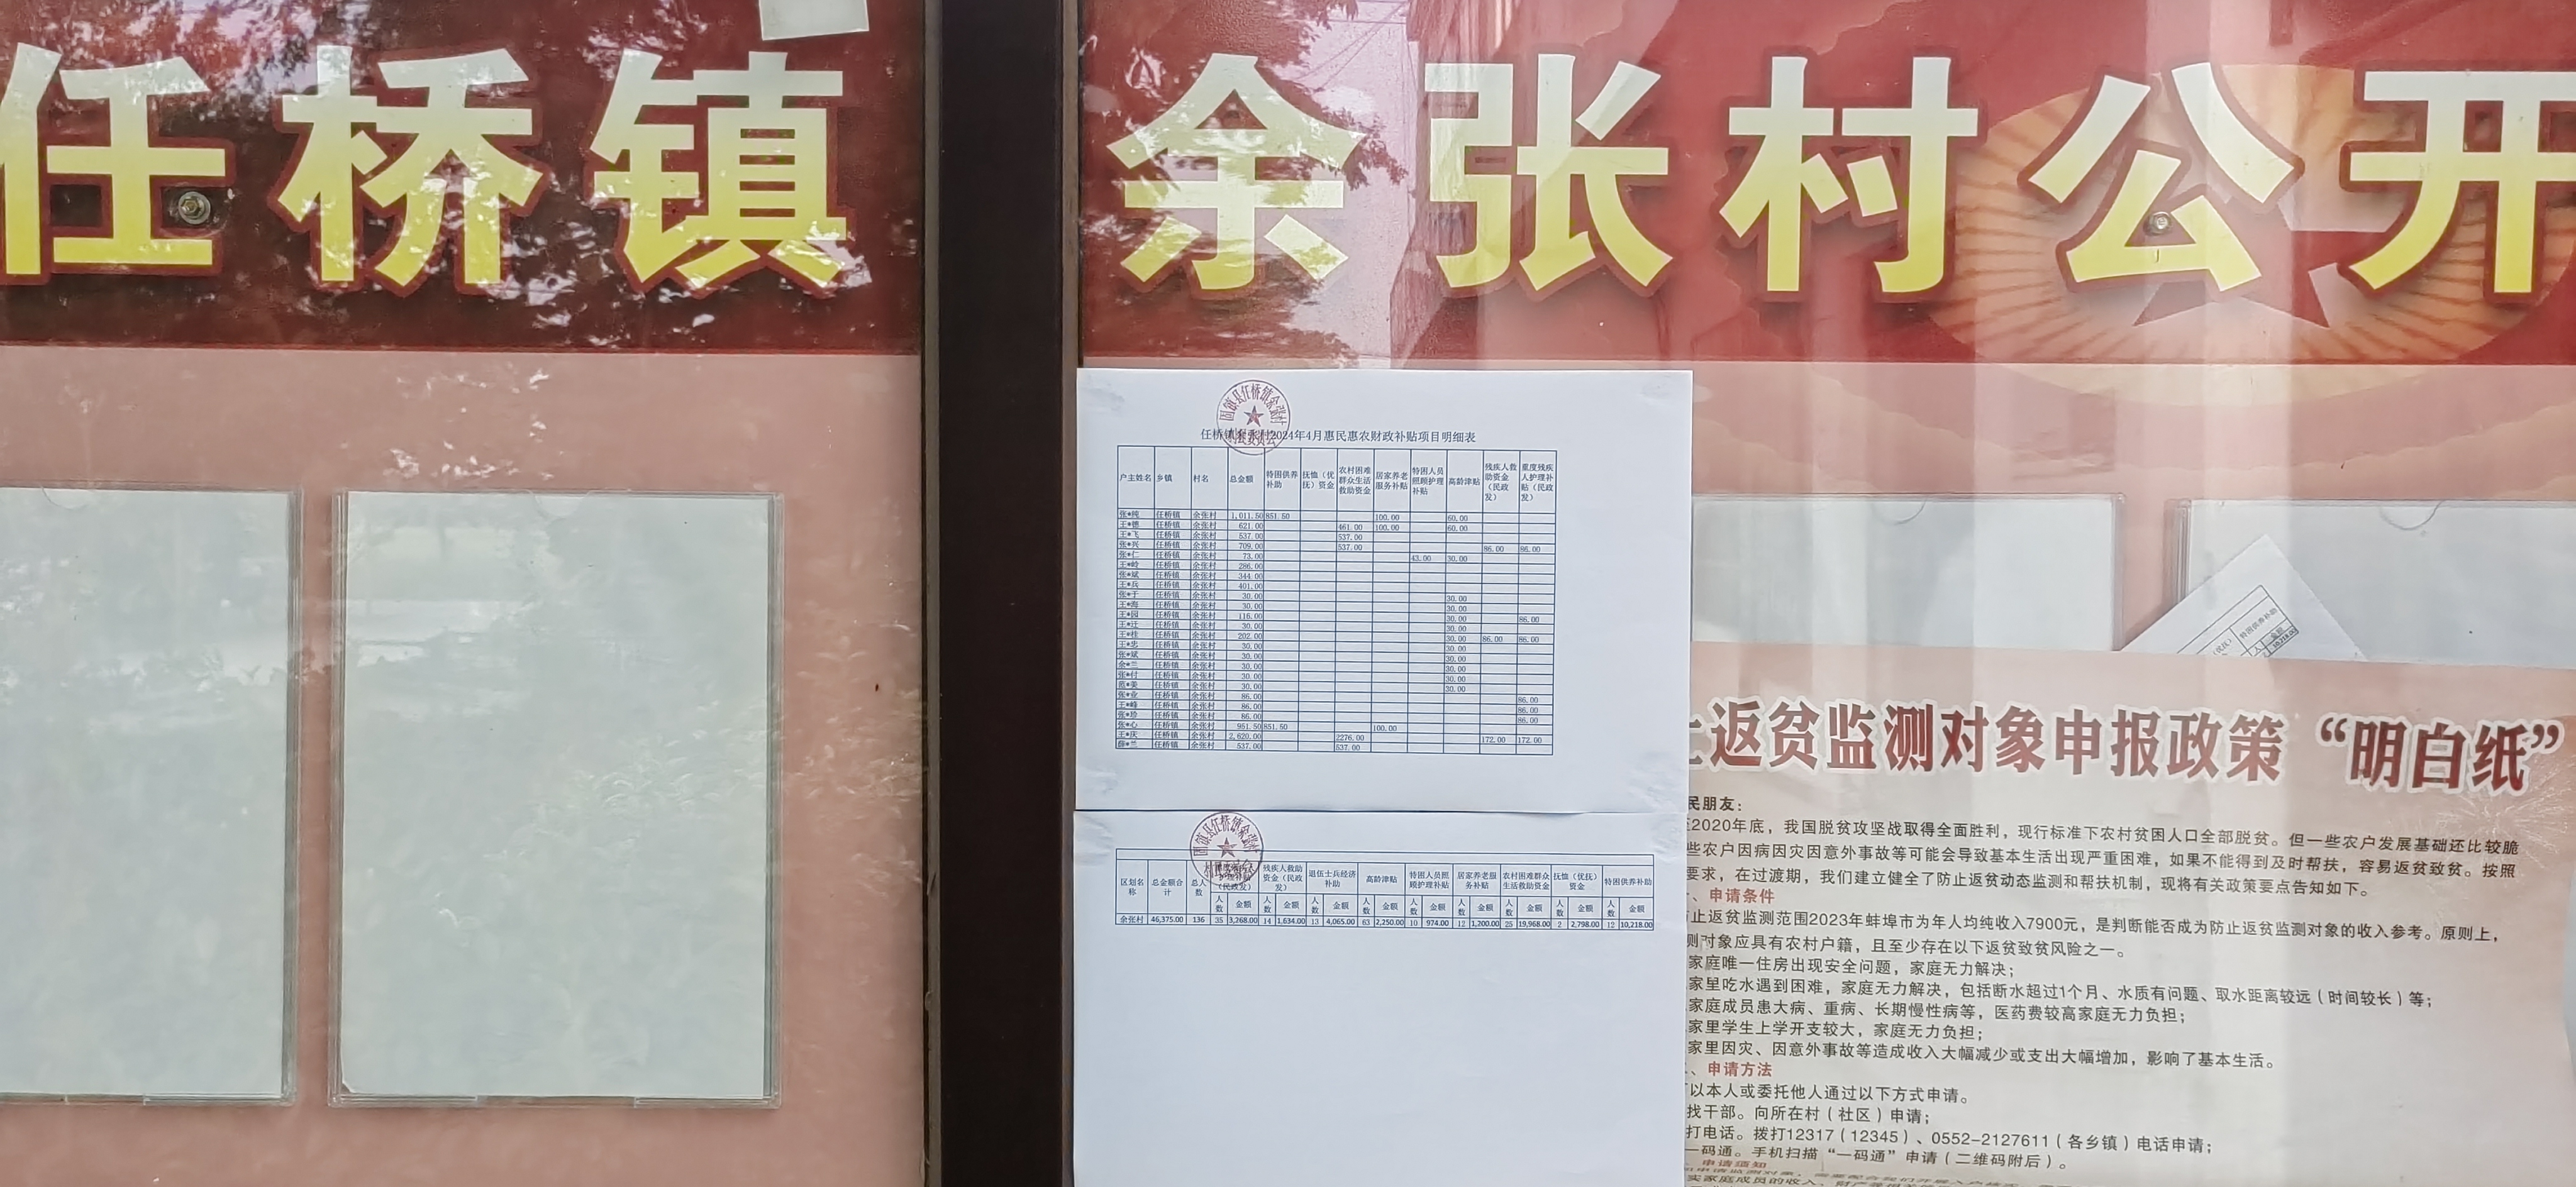 任桥镇 余张村公开
固镇县任桥镇余张村
任桥镇余张村2024年4月惠民惠农财政补贴项目明细表
户主姓名 乡镇 村名 总金额 特困供养补助 抚恤（优抚）资金 农村困难群众生活救助资金 居家养老服务补贴 特困人员照顾护理补贴 高龄津贴 残疾人救助资金（民政发） 重度残疾人护理补贴（民政发）
张*纯 任桥镇 余张村 1,011.50 851.50 100.00 60.00
王*德 任桥镇 余张村 621.00 461.00 100.00 60.00
王*飞 任桥镇 余张村 537.00 537.00
张*兴 任桥镇 余张村 709.00 537.00 86.00 86.00
张*仁 任桥镇 余张村 73.00 43.00 30.00
王*岭 任桥镇 余张村 286.00
张*斌 任桥镇 余张村 344.00
王*兵 任桥镇 余张村 401.00
张*于 任桥镇 余张村 30.00 30.00
王*海 任桥镇 余张村 30.00 30.00
王*园 任桥镇 余张村 116.00 30.00 86.00
王*迁 任桥镇 余张村 30.00 30.00
王*桂 任桥镇 余张村 202.00 30.00 86.00 86.00
王*忠 任桥镇 余张村 30.00 30.00
张*斌 任桥镇 余张村 30.00 30.00
余*兰 任桥镇 余张村 30.00 30.00
张*付 任桥镇 余张村 30.00 30.00
范*英 任桥镇 余张村 30.00 30.00
张*业 任桥镇 余张村 86.00 86.00
王*峰 任桥镇 余张村 86.00 86.00
张*珍 任桥镇 余张村 86.00 86.00
张*心 任桥镇 余张村 951.50 851.50 100.00
王*庆 任桥镇 余张村 2,620.00 2276.00 172.00 172.00
薛*兰 任桥镇 余张村 537.00 537.00
固镇县任桥镇余张村
区划名称 总金额合计 总人数 护理补贴（民政发） 残疾人救助资金（民政发） 退伍士兵经济补助 高龄津贴 特困人员照顾护理补贴 居家养老服务补贴 农村困难群众生活救助资金 抚恤（优抚）资金 特困供养补助
人数 金额 人数 金额 人数 金额 人数 金额 人数 金额 人数 金额 人数 金额 人数 金额 人数 金额
余张村 46,375.00 136 35 3,268.00 14 1,634.00 13 4,065.00 63 2,250.00 10 974.00 12 1,200.00 25 19,968.00 2 2,798.00 12 10,218.00
特困供养补助
返贫监测对象申报政策“明白纸”
民朋友：
2020年底，我国脱贫攻坚战取得全面胜利，现行标准下农村贫困人口全部脱贫。但一些农户发展基础还比较脆
些农户因病因灾因意外事故等可能会导致基本生活出现严重困难，如果不能得到及时帮扶，容易返贫致贫。按照
要求，在过渡期，我们建立健全了防止返贫动态监测和帮扶机制，现将有关政策要点告知如下。
、申请条件
止返贫监测范围2023年蚌埠市为年人均纯收入7900元，是判断能否成为防止返贫监测对象的收入参考。原则上，
测对象应具有农村户籍，且至少存在以下返贫致贫风险之一。
家庭唯一住房出现安全问题，家庭无力解决；
家里吃水遇到困难，家庭无力解决，包括断水超过1个月、水质有问题、取水距离较远（时间较长）等；
家庭成员患大病、重病、长期慢性病等，医药费较高家庭无力负担；
家里学生上学开支较大，家庭无力负担；
家里因灾、因意外事故等造成收入大幅减少或支出大幅增加，影响了基本生活。
、申请方法
以本人或委托他人通过以下方式申请。
找干部。向所在村（社区）申请；
打电话。拨打12317（12345）、0552-2127611（各乡镇）电话申请；
一码通。手机扫描“一码通”申请（二维码附后）。
、申请须知